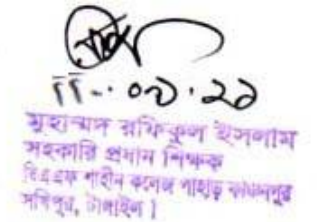 মুহাম্মদ রফিকুল ইসলাম
সহকারি প্রধান শিক্ষক
বিএএফ শাহীন কলেজ পাহাড় কাঞ্চনপুর
সখিপুর, টাঙ্গাইল।